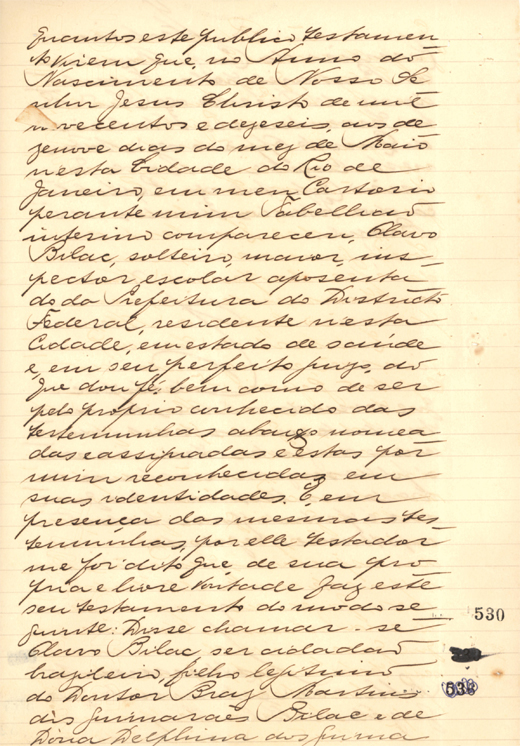 Quantos este publico testamen
to virem que, no Anno do
Nascimento de Nosso Se
nhor Jesus Christo de mil
novecentos e dezeseis, aos de
zenove dias do mez de Maio
nesta Cidade do Rio de
Janeiro, em meu Cartorio
perante mim Tabellião
interino compareceu, Olavo
Bilac, solteiro, maior, ins-
pector, escolar aposenta
do da Prefeitura do Districto
Federal, residente n'esta
Cidade, em estado de saúde
e, em seu perfeito juizo, do
que dou fé, bem como de ser
pelo proprio conhecido das
testemunhas abaixo nomea
das e assignadas e estas por
mim reconhecidas em
suas identidades. E, em
presença das mesmas tes-
temunhas, por elle testador
me foi dito que, de sua pro
pria e livre vontade faz este
seu testamento do modo se-
guinte: Disse chamar-se
Olavo Bilac, ser cidadão
brasileiro, filho legitimo
do Doutor Braz Martins
dos Guimarães Bilac e de
Dona Delphina dos Guima
530